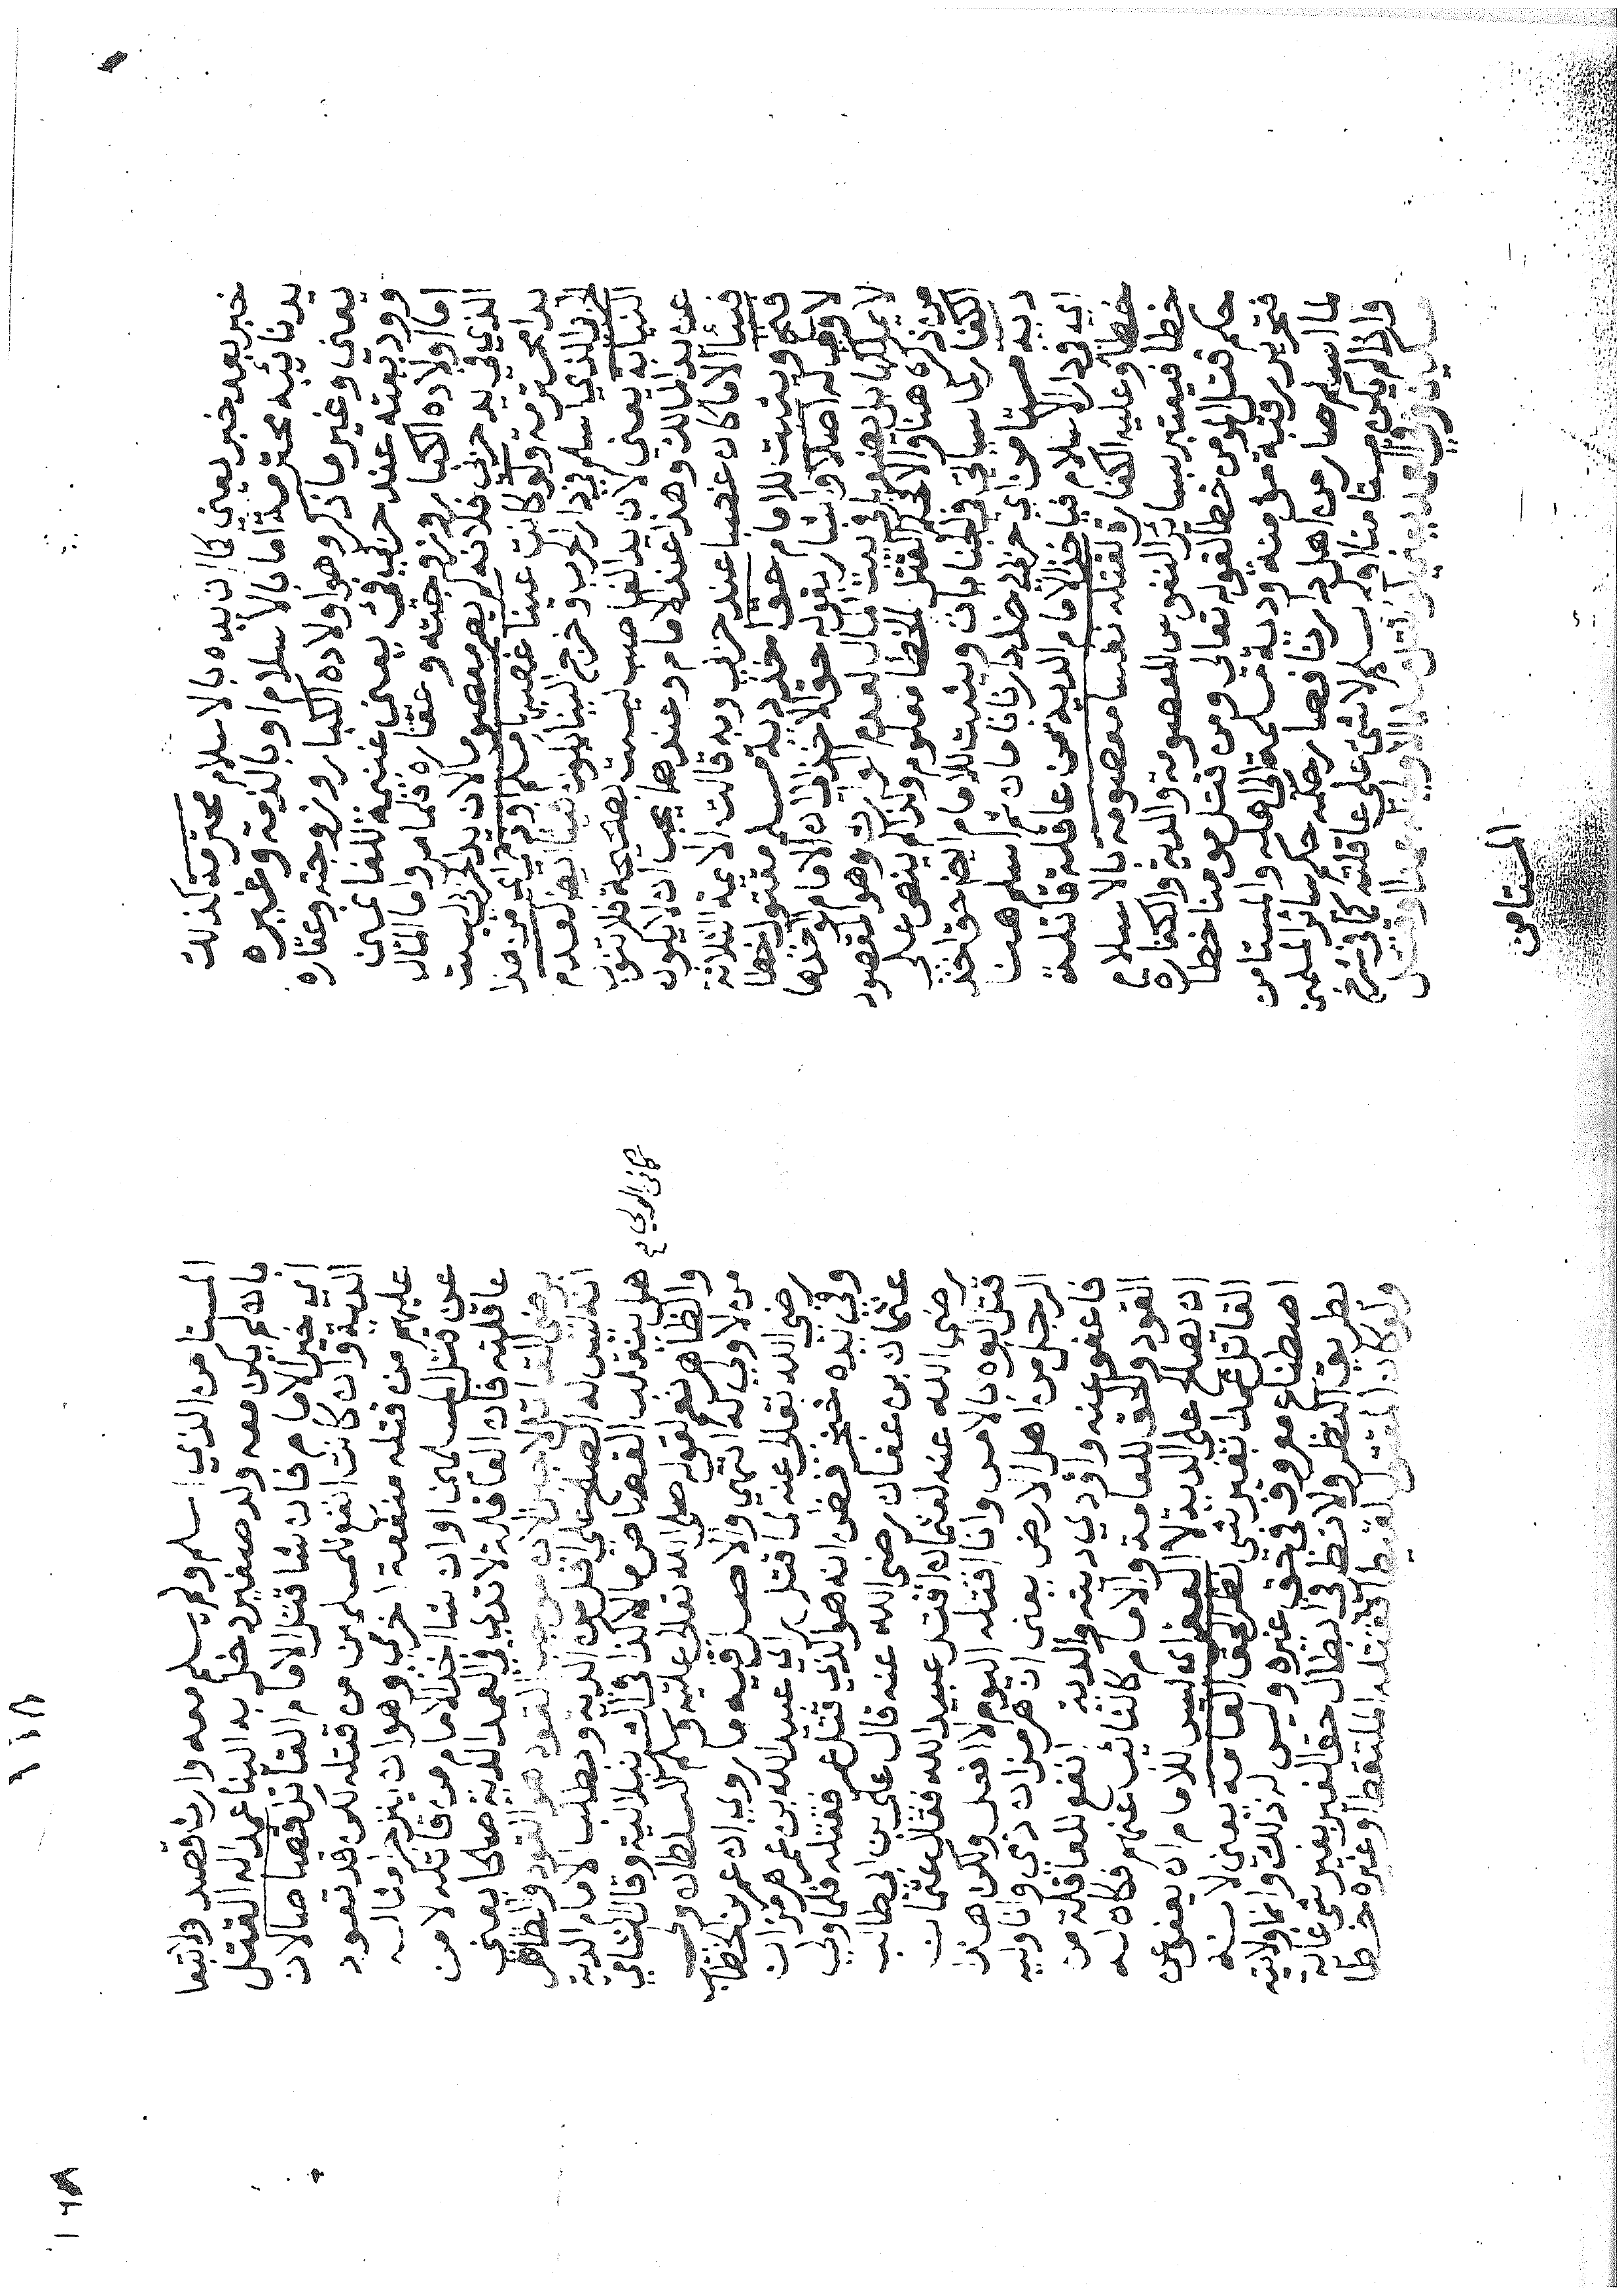 خبر بعد خبر يعني كما ان يده بالاسلام محترمة كذلك
يد نائبه محترمة اما بالاسلام او بالذمة وغيره
يعني وغير ما ذكر وهو اولاده الكبار وزوجته وعقاره
ووديعته عند حربي فيء يعني غنيمة للغانمين
اما اولاده الكبار وزوجته وعقاره فلما مر واما المال
الذي في يد حربي فلانه لم يصر معصوما لان يد الحربي ليست
يدا محترمة ولو كانت عينا غصبها مسلم او ذمي من هذا
الذي اسلم في دار الحرب وخرج الينا يكون فيئا ايضا لعدم
النيابة يعني لان يد الغاصب ليست بصحيحة فلا تنوب
عن يد المالك وهذا عند الامام وعندهما يجب ان لا يكون
فيئا الا ما كان غصبا عند حربي وبه قالت الايمة الثلاثة
ويثبت للامام حق اخذ دية مسلم مقتول خطا
لا ولي له اصلا واشار بقوله حق الاخذ الى ان الامام لو اخذها
لا يملكها بل يضعها في بيت المال لعدم الوارث وهو المقصود
من ذكره هنا والا فحكم القتل الخطا معلوم وانما لم ينص على
الكفارة لما سياتي في الجنايات ويثبت للامام ايضا حق اخذ
دية مستامن اي حربي دخل دارنا بامان ثم اسلم هنا
اي في دار الاسلام فياخذ الامام الدية من عاقلة قاتله
خطا وعليه الكفارة لقتله نفسا معصومة بالاسلام
خطا فيعتبر بسائر النفوس المعصومة والدية والكفارة
حكم قتل المومن خطا لقوله تعالى ومن قتل مومنا خطا
فتحرير رقبة مؤمنة ودية مسلمة الى اهله والمستامن
لما اسلم صار من اهل دارنا فصار حكمه حكم سائر المسلمين
واذا لم يكن مستامنا او لم يسلم لا شئ على عاقلته كما في شرح
المستامن
المستامن الذي اسلم ولم يسلم معه وارث قصدا ولا تبعا
بان لم يكن معه ولد صغير دخل به الينا عمدا له القتل
اي خير الامام فان شا قتل الامام القاتل قصاصا لان
الدية وان كانت انفع للمسلمين من قتله لكن قد تعود
عليهم من قتله منفعة اخرى وهو ان ينزجر امثاله
عن قتل المسلمين او ان شا اخذ الامام من قاتله لا من
عاقلته فان العاقلة لا تدي في العمد الدية صلحا يعني
برضى القاتل لا جبرا لان موجب القود هو القود والظاهر
انه ليس له الصلح على اقل من الدية ولو طلب الامام الدية
هل ينقلب القصاص مالا
والظاهر نعم لقوله صلى الله تعالى عليه وسلم السلطان ولي
من لا ولي له انتهى والاصل فيه ما روي ان عمر بن الخطاب
رضي الله تعالى عنه لما قتل راى عبيد الله بن عمر هرمزان
وفي يده خنجر فظن انه هو الذي قتل عمر فقتله فلما ولي
عثمان بن عفان رضي الله عنه قال علي بن ابي طالب
رضي الله عنه لعثمان اقتل عبيد الله فقال عثمان
قتل ابوه بالامس وانا اقتله اليوم لا افعل ولكن هذا
الرجل من اهل الارض يعني ان هرمزان ذمي وانا وليه
فاعفو عنه واؤدي ديته والدية انفع للعاقلة من
القود والحق للعامة والامام كالنائب عنهم فكان له
ان يصلح على الدية لا العفو اي ليس للامام ان يعفو عن
القاتل عمدا بغير شئ نظرا لحق العامة يعني لانه
اصطناع معروف في حق غيره وليس له ذلك وانما ولايته
بطريق النظر ولا نظر في ابطال حق الغير بغير شئ فانه
ولو كان المقتول لقيطا فقتله الملتقط او غيره خطا
١٦٨